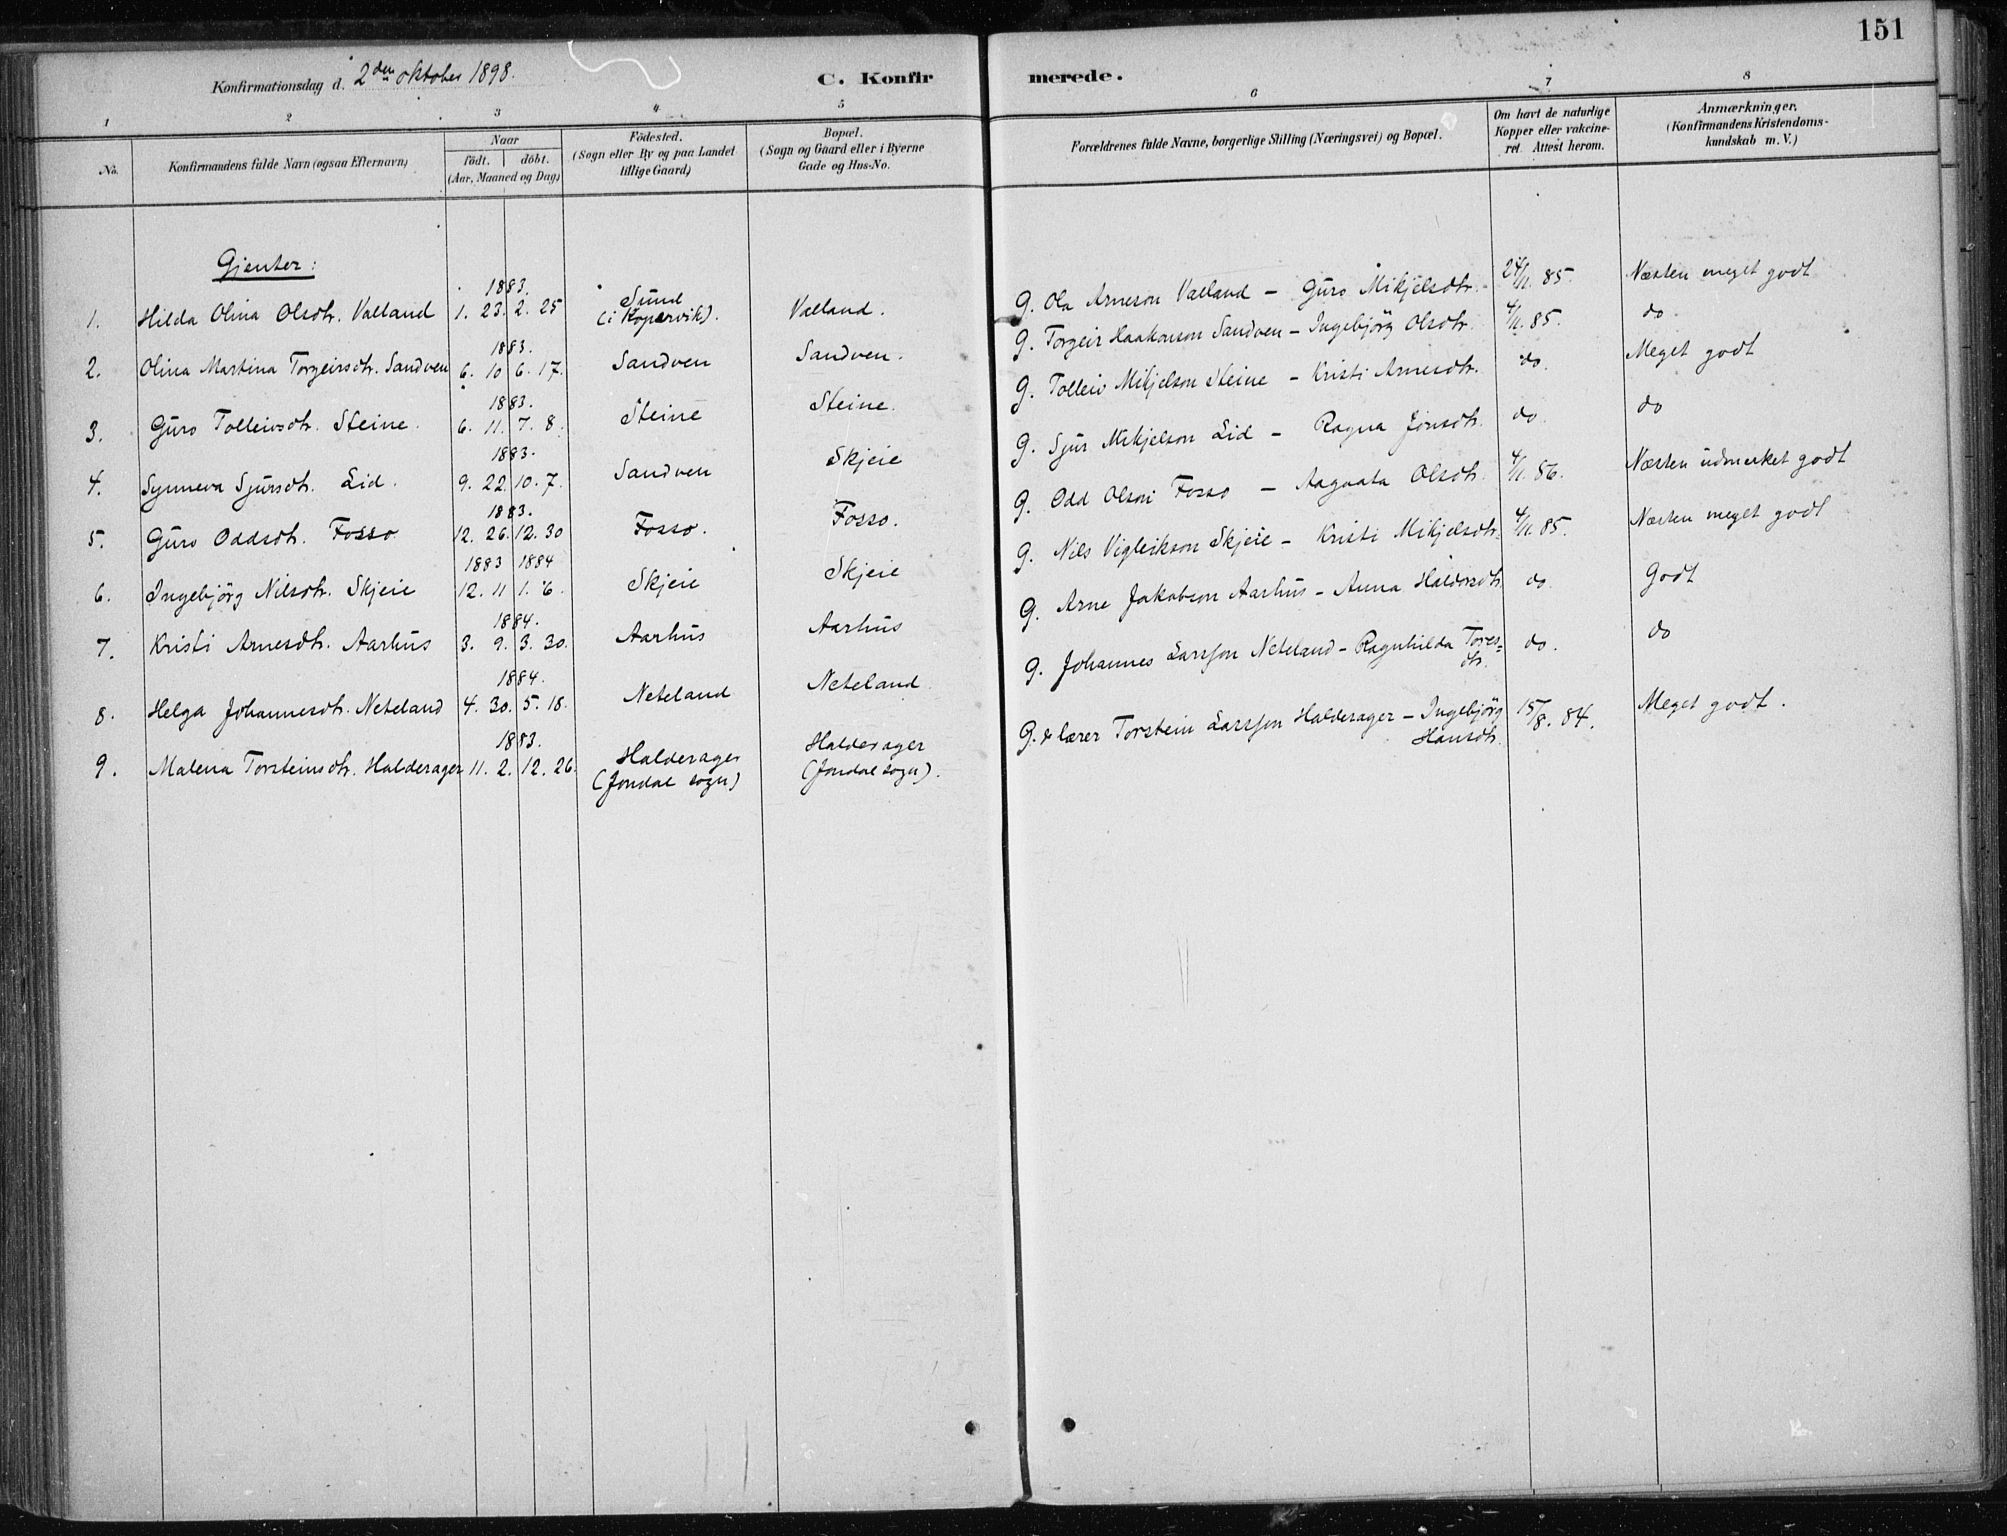 151
Konfirmationsdag d. 2den oktober 1898.
C. Konfirmerede.
1 2 3 4 5 6 7 8
No.
Konfirmandens fulde Navn (ogsaa Efternavn)
Naar
födt. döbt.
(Aar, Maaned og Dag)
Födested.
(Sogn eller By og paa Landet
tillige Gaard)
Bopæl.
(Sogn og Gaard eller i Byerne
Gade og Hus-No.
Forældrenes fulde Navne, borgerlige Stilling (Næringsvei) og Bopæl.
Om havt de naturlige
Kopper eller vakcine-
ret. Attest herom.
Anmærkninger,
(Konfirmandens Kristendoms-
kundskab m. V.)
Gjenter:
1883.
1. Hilda Olina Olsdtr. Valland 1. 23. 2. 25 Sund (i Kopervik). Valland. G. Ola Arneson Valland - Guro Mikjelsdtr. 24/11. 85. Næsten meget godt
1883.
2. Olina Martina Torgeirsdtr. Sandven 6. 10 6. 17. Sandven Sandven. G. Torgeir Haakonson Sandven - Ingebjörg Olsdtr. 4/11. 85. do
1883.
3. Guro Tolleivsdtr. Steine. 6. 11. 7. 8. Steine Steine. G. Tolleiv Mikjelson Steine - Kristi Arnesdtr. do. Meget godt
1883.
4. Synneva Sjursdtr. Lid. 9. 22. 10. 7. Sandven Skjeie G. Sjur Mikjelson Lid - Ragna Jonsdtr. do. do
1883.
5. Guro Oddsdtr. Fosso 12. 26. 12. 30 Fosso. Fosso. G. Odd Olson Fosso - Aagaata Olsdtr. 4/11. 86. Næsten udmerket godt
1883 1884
6. Ingebjörg Nilsdtr. Skjeie 12. 11 1. 6. Skjeie Skjeie G. Nils Vigleikson Skjeie - Kristi Mikjelsdtr. 4/11. 85. Næsten meget godt
1884.
7. Kristi Arnesdtr. Aarhus 3. 9. 3. 30. Aarhus Aarhus G. Arne Jakobson Aarhus - Anna Haldorsdtr. do. Godt
1884.
8. Helga Johannesdtr. Neteland 4. 30. 5. 18. Neteland Neteland G. Johannes Larsson Neteland - Ragnhilda Tores-
dtr. do. do
1883.
9. Malena Torsteinsdtr. Halderager 11. 2. 12. 26. Halderager (Jondal sogn) Halderager (Jondal sogn). G. & lærer Torstein Larsson Halderager - Ingebjörg
Hansdtr. 15/8. 84. Meget godt.